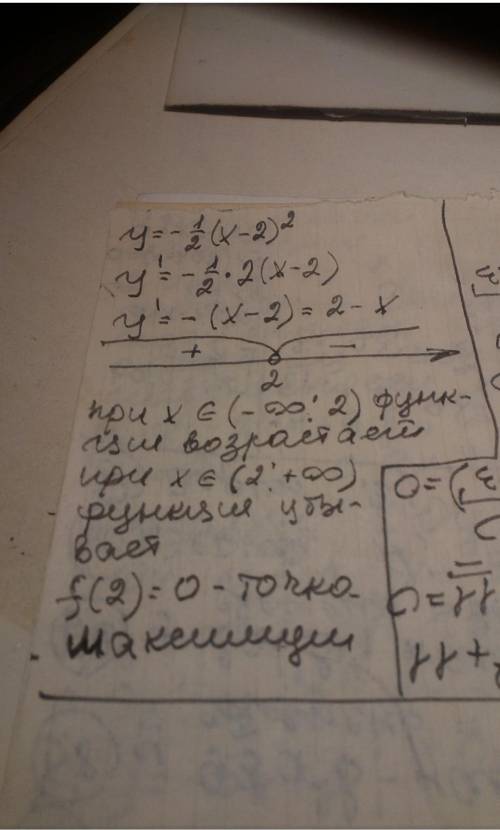 y = -1/2 (x-2)²
y' = -1/2 · 2(x-2)
y' = -(x-2) = 2 - x
+ −
2
при x ∈ (-∞; 2) функ-
ция возрастает
при x ∈ (2; +∞)
функция убы-
вает
f(2) = 0 - точка
максимума